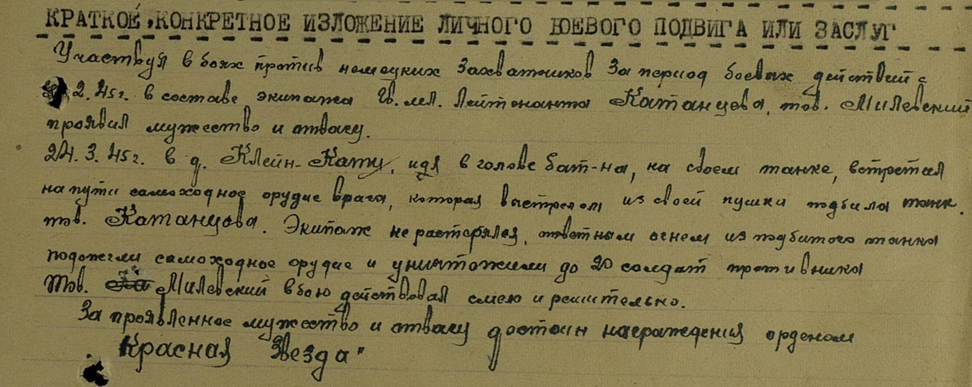 КРАТКОЕ, КОНКРЕТНОЕ ИЗЛОЖЕНИЕ ЛИЧНОГО БОЕВОГО ПОДВИГА ИЛИ ЗАСЛУГ
Участвуя в боях против немецких захватчиков за период боевых действий с
2.45г. в составе экипажа Гв. мл. Лейтенанта Катанцева, тов. Милевский
проявил мужество и отвагу.
24.3.45г. в д. Клейн-Катц, идя в голове бат-на, на своем танке, встретил
на пути самоходное орудие врага, которая выстрелом из своей пушки подбила танк.
тов. Катанцева. Экипаж не растерялся, ответным огнем из подбитого танка
подожгли самоходное орудие и уничтожили до 20 солдат противника
Тов. Милевский в бою действовал смело и решительно.
За проявленное мужество и отвагу достоин награждения орденом
Красная Звезда"